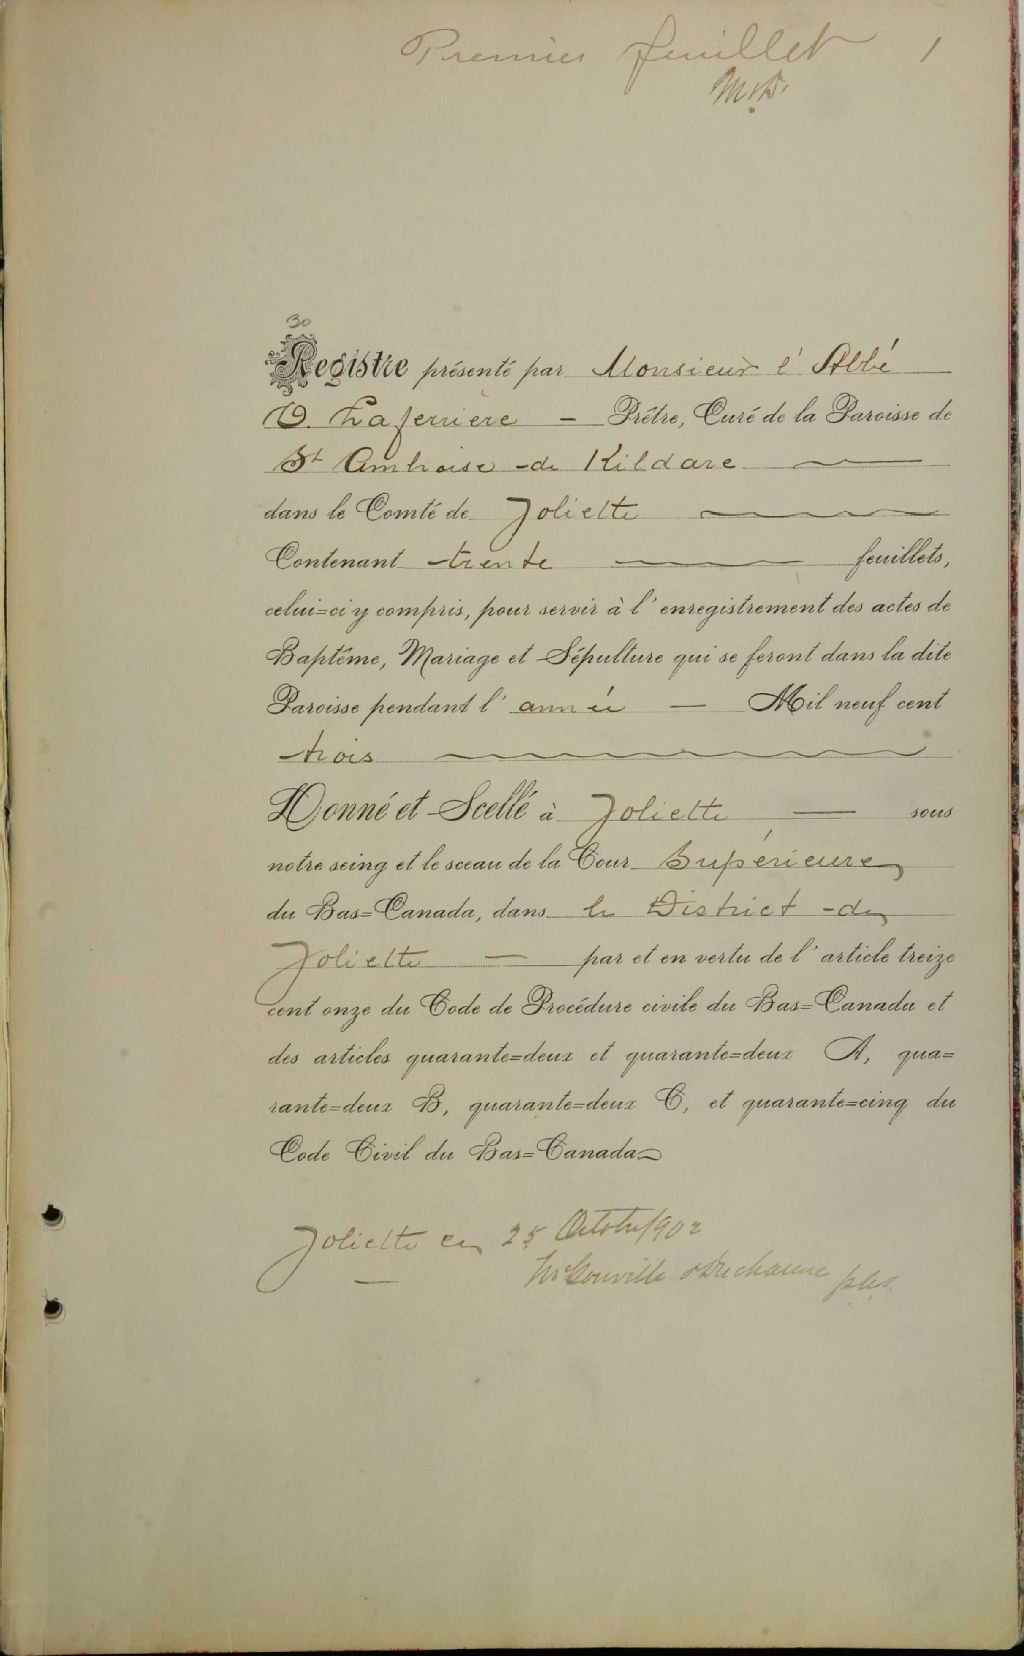 Premier feuillet 1
30
Registre présenté par Monsieur l'Abbé
O. Laferrière — Prêtre, Curé de la Paroisse de
St Ambroise de Kildare
dans le Comté de Joliette
Contenant trente feuillets,
celui=ci y compris, pour servir à l'enregistrement des actes de
Baptême, Mariage et Sépulture qui se feront dans la dite
Paroisse pendant l'année — Mil neuf cent
trois
Donné et Scellé à Joliette — sous
notre seing et le sceau de la Cour Supérieure
du Bas=Canada, dans le District de
Joliette — par et en vertu de l'article treize
cent onze du Code de Procédure civile du Bas=Canada et
des articles quarante=deux et quarante=deux A, qua=
rante=deux B, quarante=deux C, et quarante=cinq du
Code Civil du Bas=Canada
Joliette ce 25 Octobre 1902